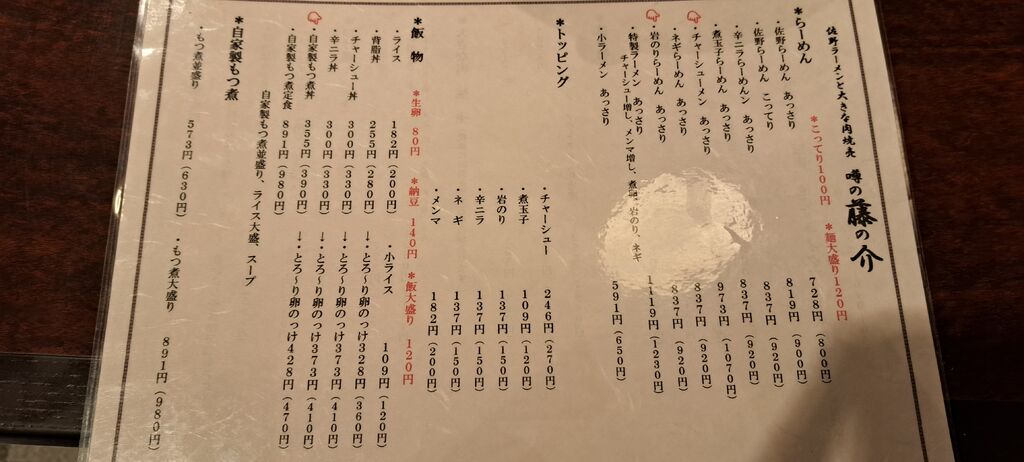 佐野ラーメンと大きな肉焼売 噂の藤の介
*らーめん *こってり100円 *麺大盛り120円
・佐野らーめん あっさり 728円(800円)
・佐野らーめん こってり 819円(900円)
・辛ニラらーめん あっさり 837円(920円)
・煮玉子らーめん あっさり 837円(920円)
・チャーシューメン あっさり 973円(1070円)
・ネギらーめん あっさり 837円(920円)
・岩のりらーめん あっさり 837円(920円)
・特製ラーメン あっさり 1119円(1230円)
チャーシュー増し、メンマ増し、煮卵、岩のり、ネギ
・小ラーメン あっさり 591円(650円)
*トッピング
・チャーシュー 246円(270円)
・煮玉子 109円(120円)
・岩のり 137円(150円)
・辛ニラ 137円(150円)
・ネギ 137円(150円)
・メンマ 182円(200円)
*飯物 *生卵 80円 *納豆 140円 *飯大盛り 120円
・ライス 182円(200円) ・小ライス 109円(120円)
・背脂丼 255円(280円) →・とろ~り卵のっけ328円(360円)
・チャーシュー丼 300円(330円) →・とろ~り卵のっけ373円(410円)
・辛ニラ丼 300円(330円) →・とろ~り卵のっけ373円(410円)
・自家製もつ煮丼 355円(390円) →・とろ~り卵のっけ428円(470円)
・自家製もつ煮定食 891円(980円)
自家製もつ煮並盛り、ライス大盛、スープ
*自家製もつ煮
・もつ煮並盛り 573円(630円) ・もつ煮大盛り 891円(980円)